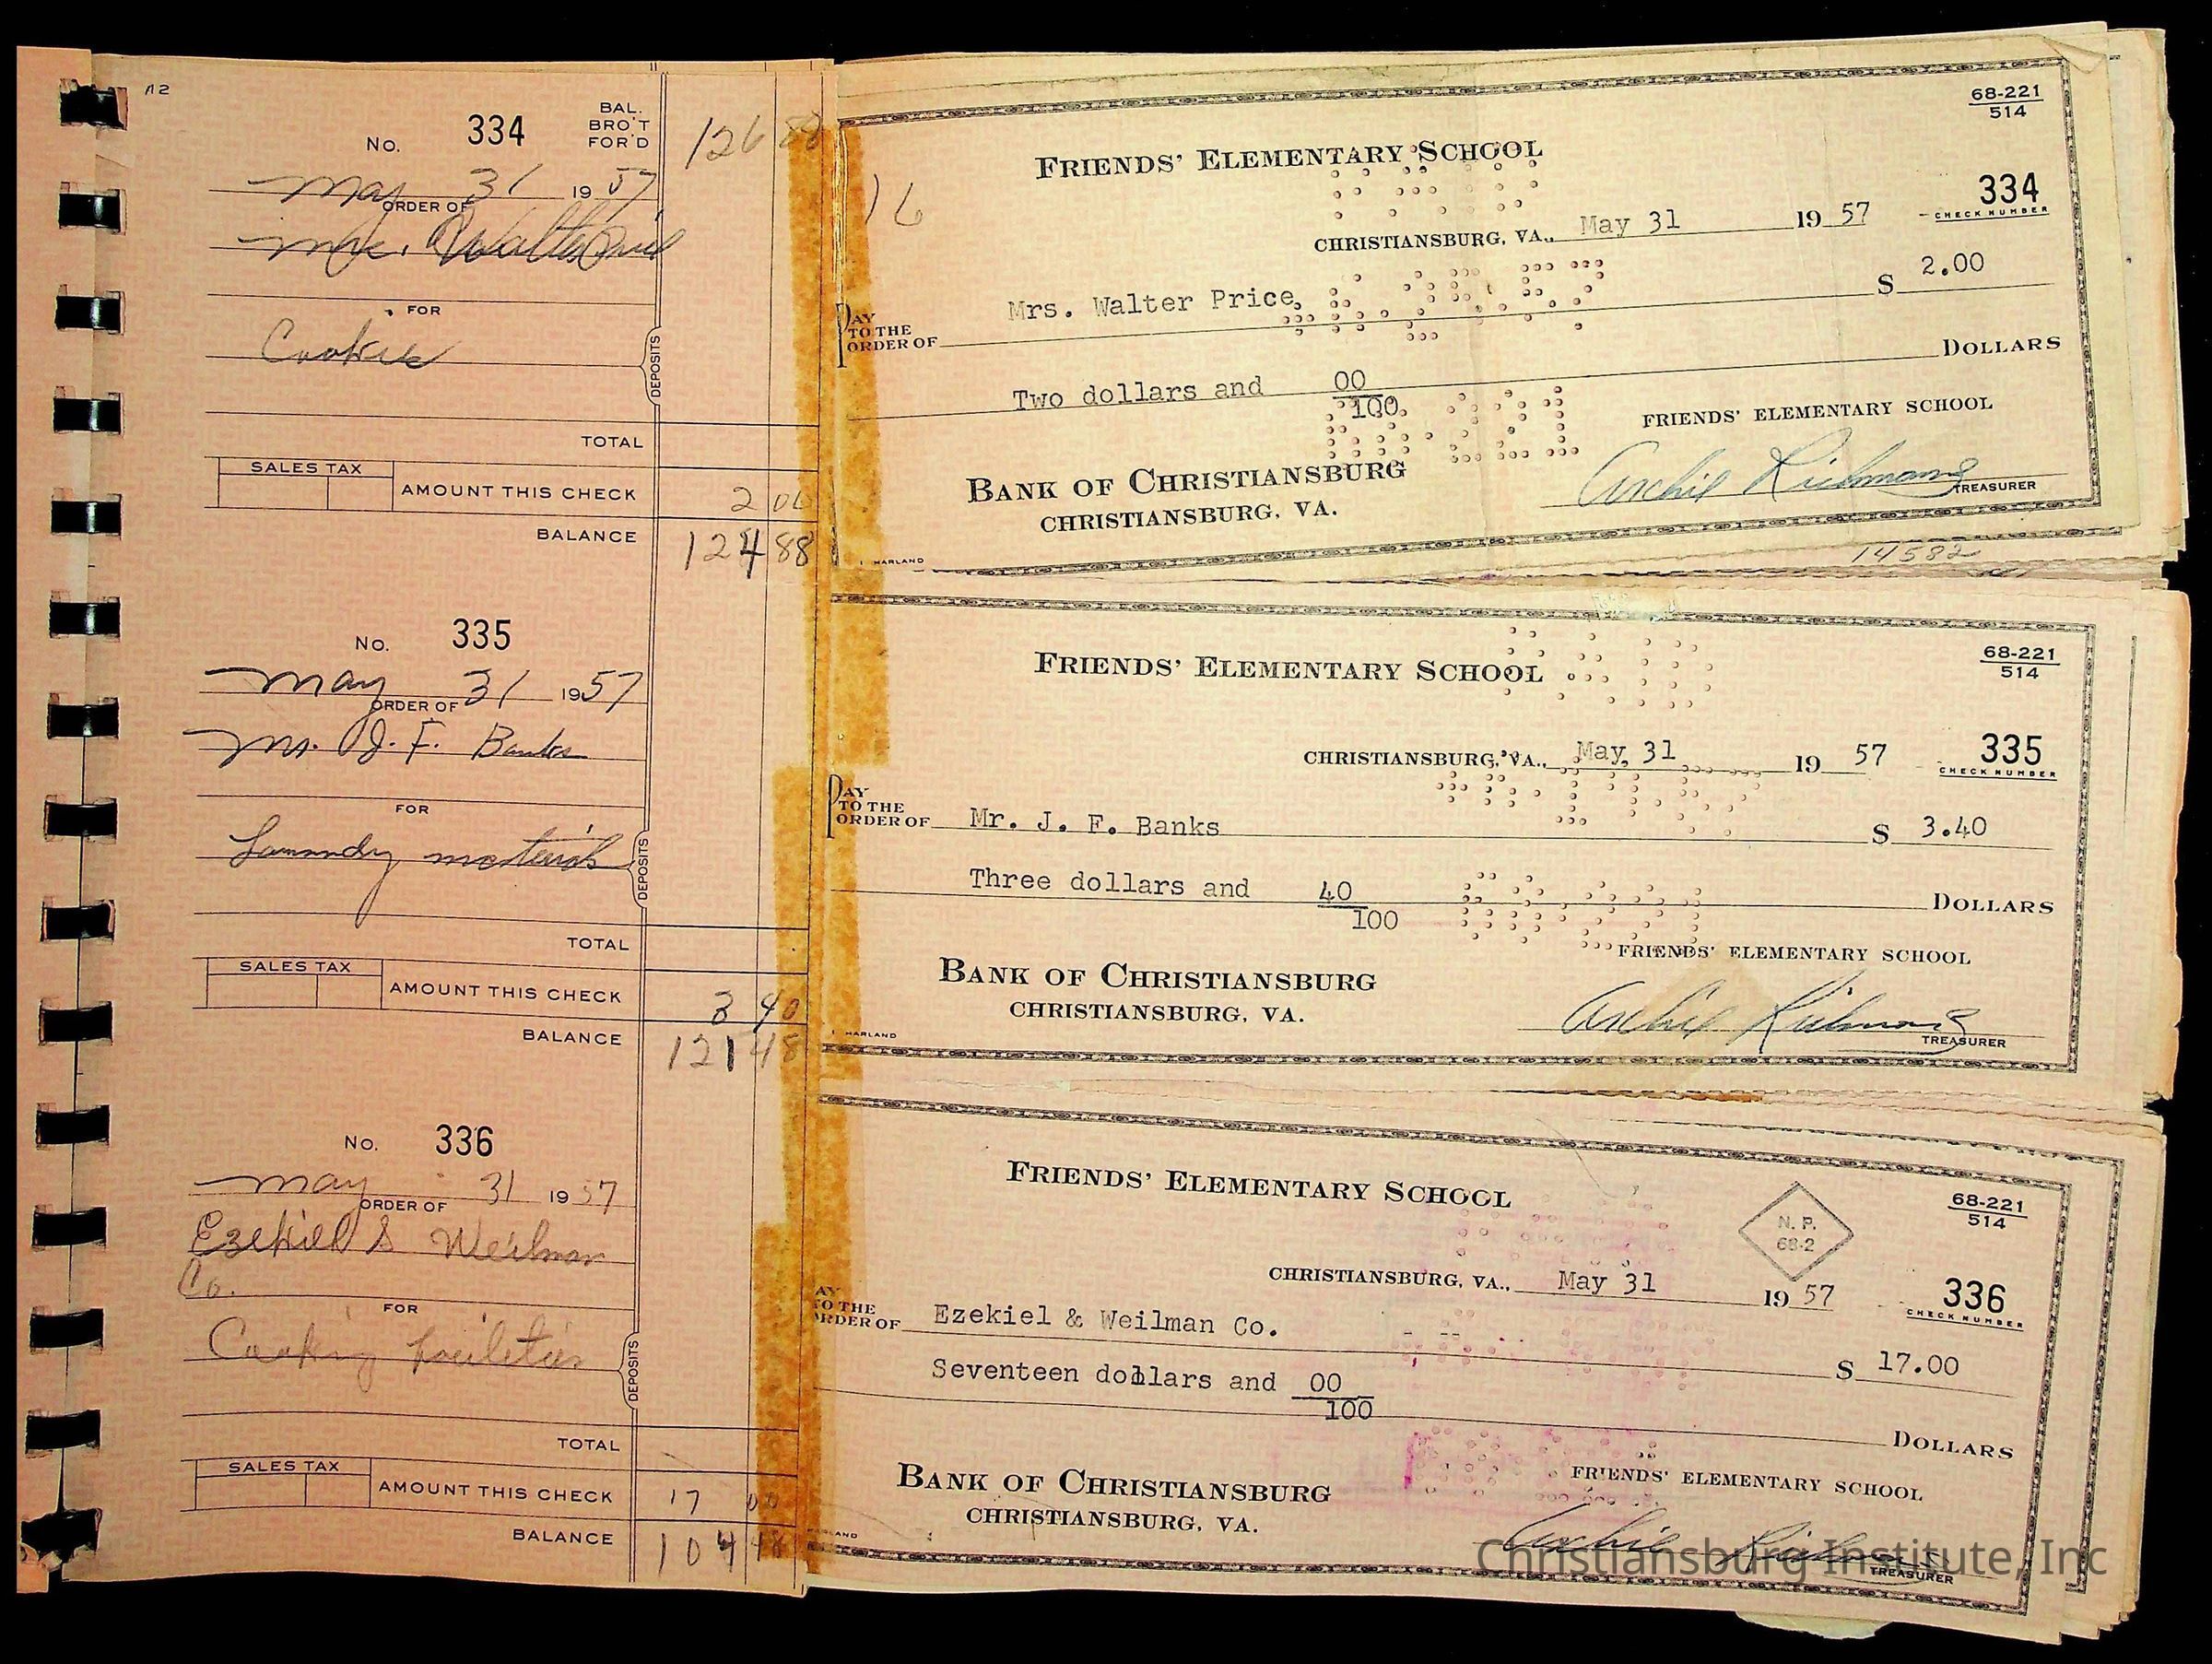 112
No. 334
BAL. BRO'T FOR'D 126 88
May 31 1957
ORDER OF
Mrs. Walter Price
FOR
Cookies
DEPOSITS
TOTAL
SALES TAX
AMOUNT THIS CHECK 2 00
BALANCE 124 88
No. 335
May 31 1957
ORDER OF
Mr. J. F. Banks
FOR
Laundry materials
DEPOSITS
TOTAL
SALES TAX
AMOUNT THIS CHECK 3 40
BALANCE 121 48
No. 336
May 31 1957
ORDER OF
Ezekiel & Weilman
Co.
FOR
Cooking facilities
DEPOSITS
TOTAL
SALES TAX
AMOUNT THIS CHECK 17 00
BALANCE 104 48
68-221
514
FRIENDS' ELEMENTARY SCHOOL
16
334
CHECK NUMBER
CHRISTIANSBURG, VA., May 31 19 57
PAY TO THE ORDER OF Mrs. Walter Price, $ 2.00
Two dollars and 00/100 DOLLARS
FRIENDS' ELEMENTARY SCHOOL
BANK OF CHRISTIANSBURG
CHRISTIANSBURG, VA.
Archie Richmond
TREASURER
HARLAND
14582
68-221
514
FRIENDS' ELEMENTARY SCHOOL
335
CHECK NUMBER
CHRISTIANSBURG, VA., May 31 19 57
PAY TO THE ORDER OF Mr. J. F. Banks $ 3.40
Three dollars and 40/100 DOLLARS
FRIENDS' ELEMENTARY SCHOOL
BANK OF CHRISTIANSBURG
CHRISTIANSBURG, VA.
Archie Richmond
TREASURER
HARLAND
FRIENDS' ELEMENTARY SCHOOL
N. P.
68-2
68-221
514
336
CHECK NUMBER
CHRISTIANSBURG, VA., May 31 19 57
AY TO THE ORDER OF Ezekiel & Weilman Co. $ 17.00
Seventeen dollars and 00/100
DOLLARS
FRIENDS' ELEMENTARY SCHOOL
BANK OF CHRISTIANSBURG
CHRISTIANSBURG, VA.
Archie Richmond
TREASURER
Christiansburg Institute, Inc